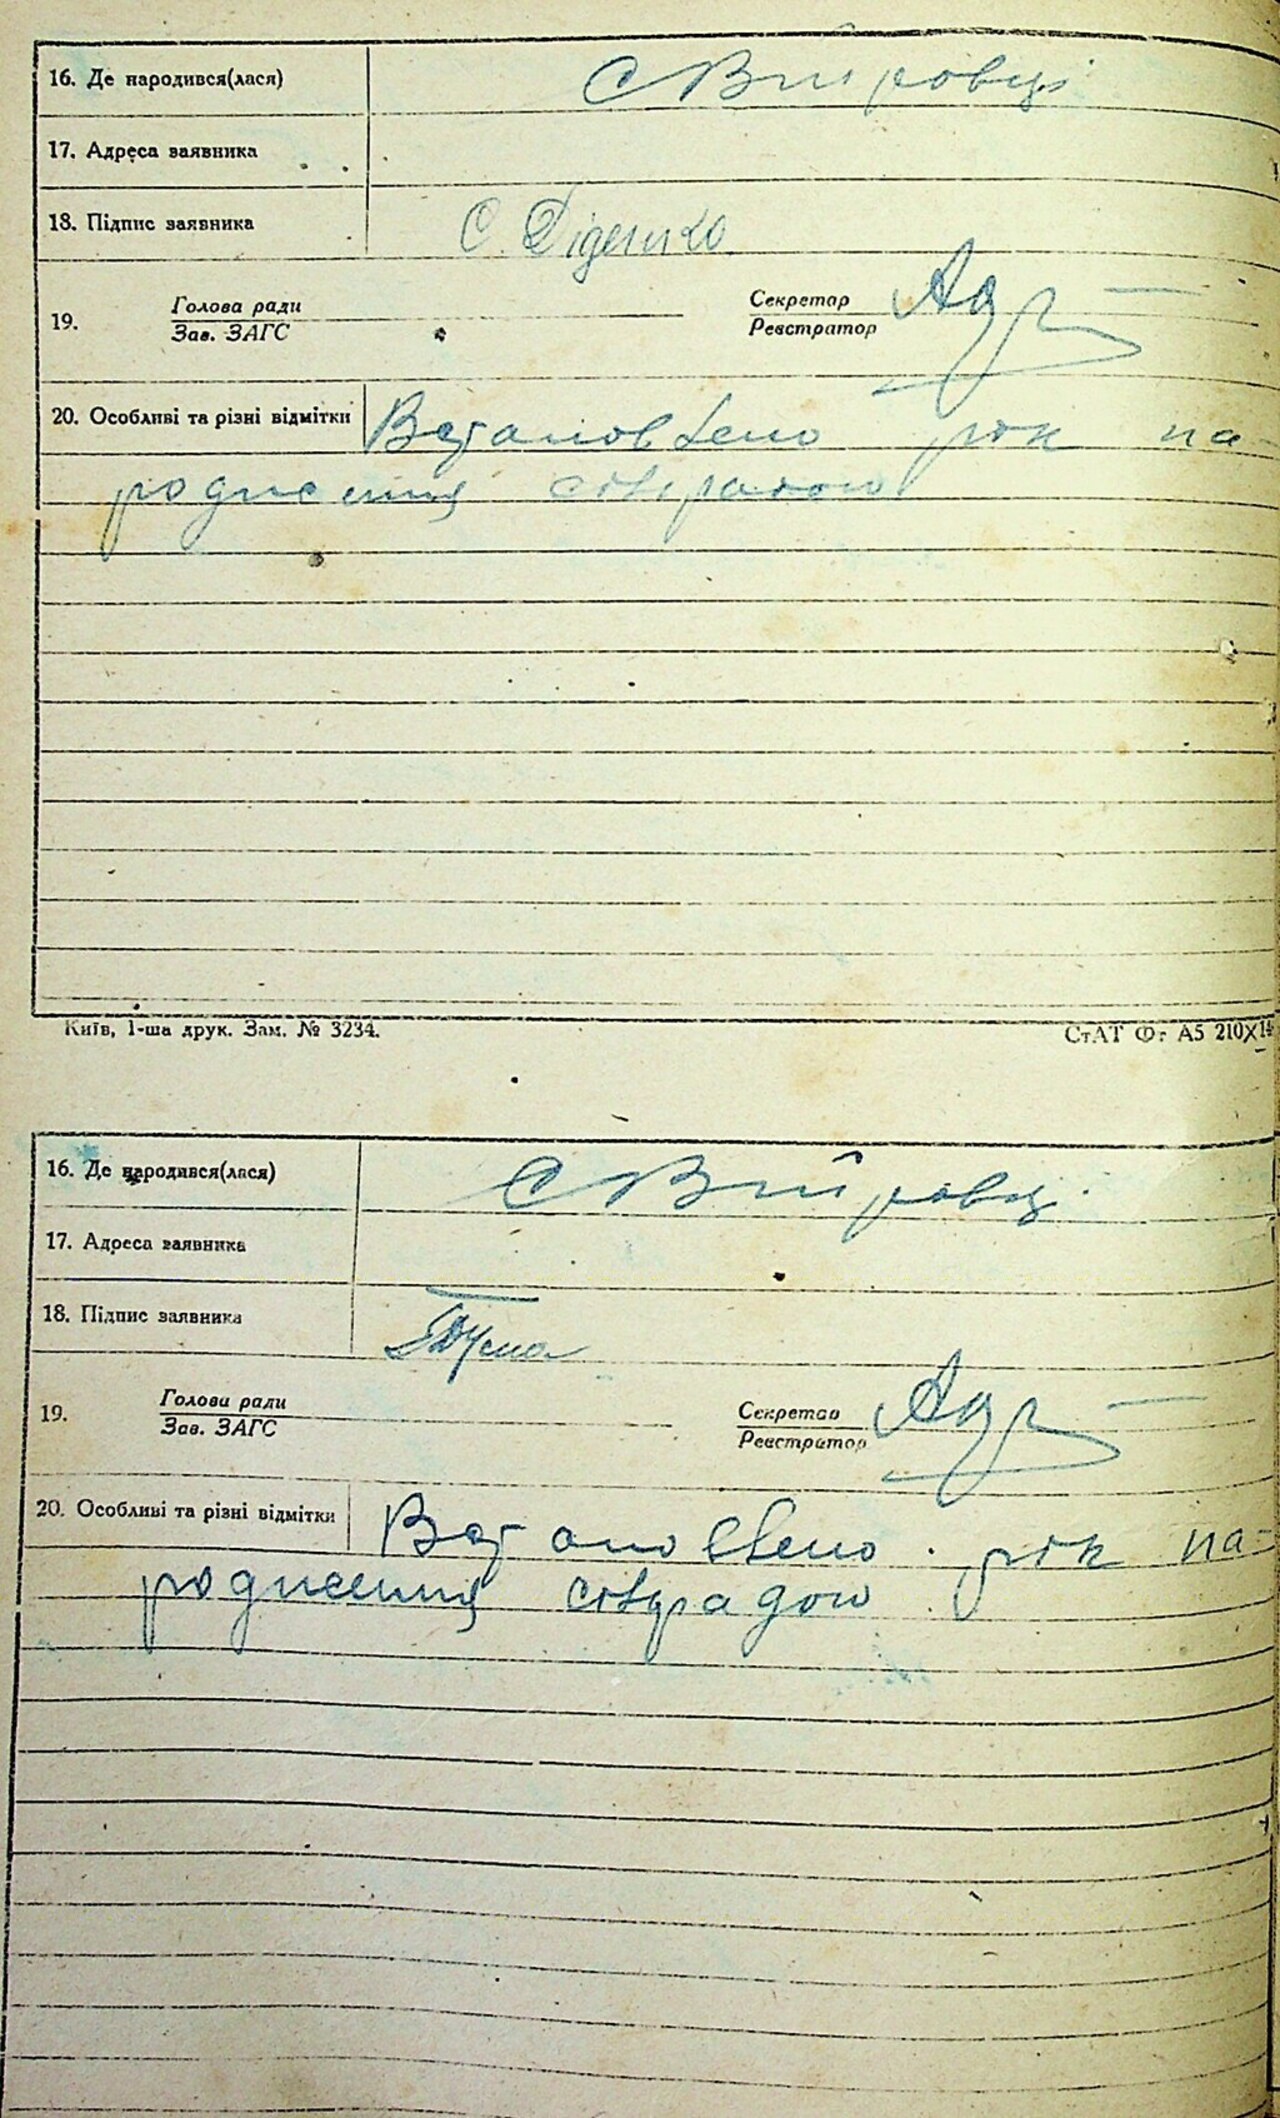 16. Де народився(лася) С Війровці
17. Адреса заявника
18. Підпис заявника С. Діденко
19. Голова ради Секретар
Зав. ЗАГС Реєстратор
20. Особливі та різні відмітки Встановлено рік на-
родження сільрадою
Київ, 1-ша друк. Зам. № 3234. СтАТ Ф. А5 210X14
16. Де народився(лася) С Війровці
17. Адреса заявника
18. Підпис заявника
19. Голова ради Секретар
Зав. ЗАГС Реєстратор
20. Особливі та різні відмітки Встановлено рік на-
родження сільрадою